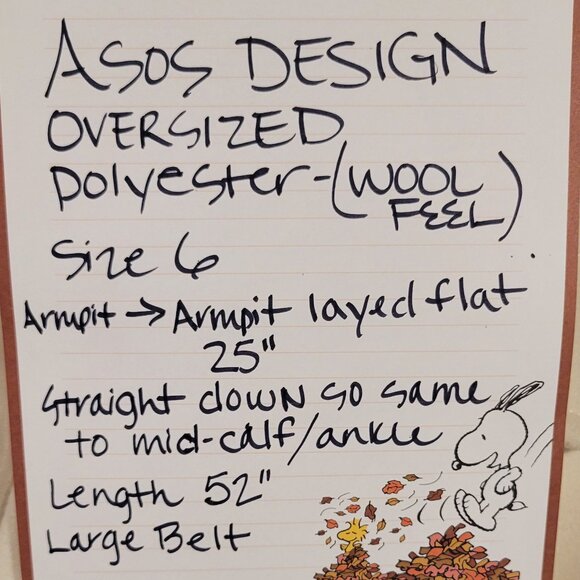 ASOS DESIGN
OVERSIZED
Polyester-(WOOL
FEEL)
Size 6
Armpit → Armpit layed flat
25"
Straight down so same
to mid-calf/ankle
Length 52"
Large Belt